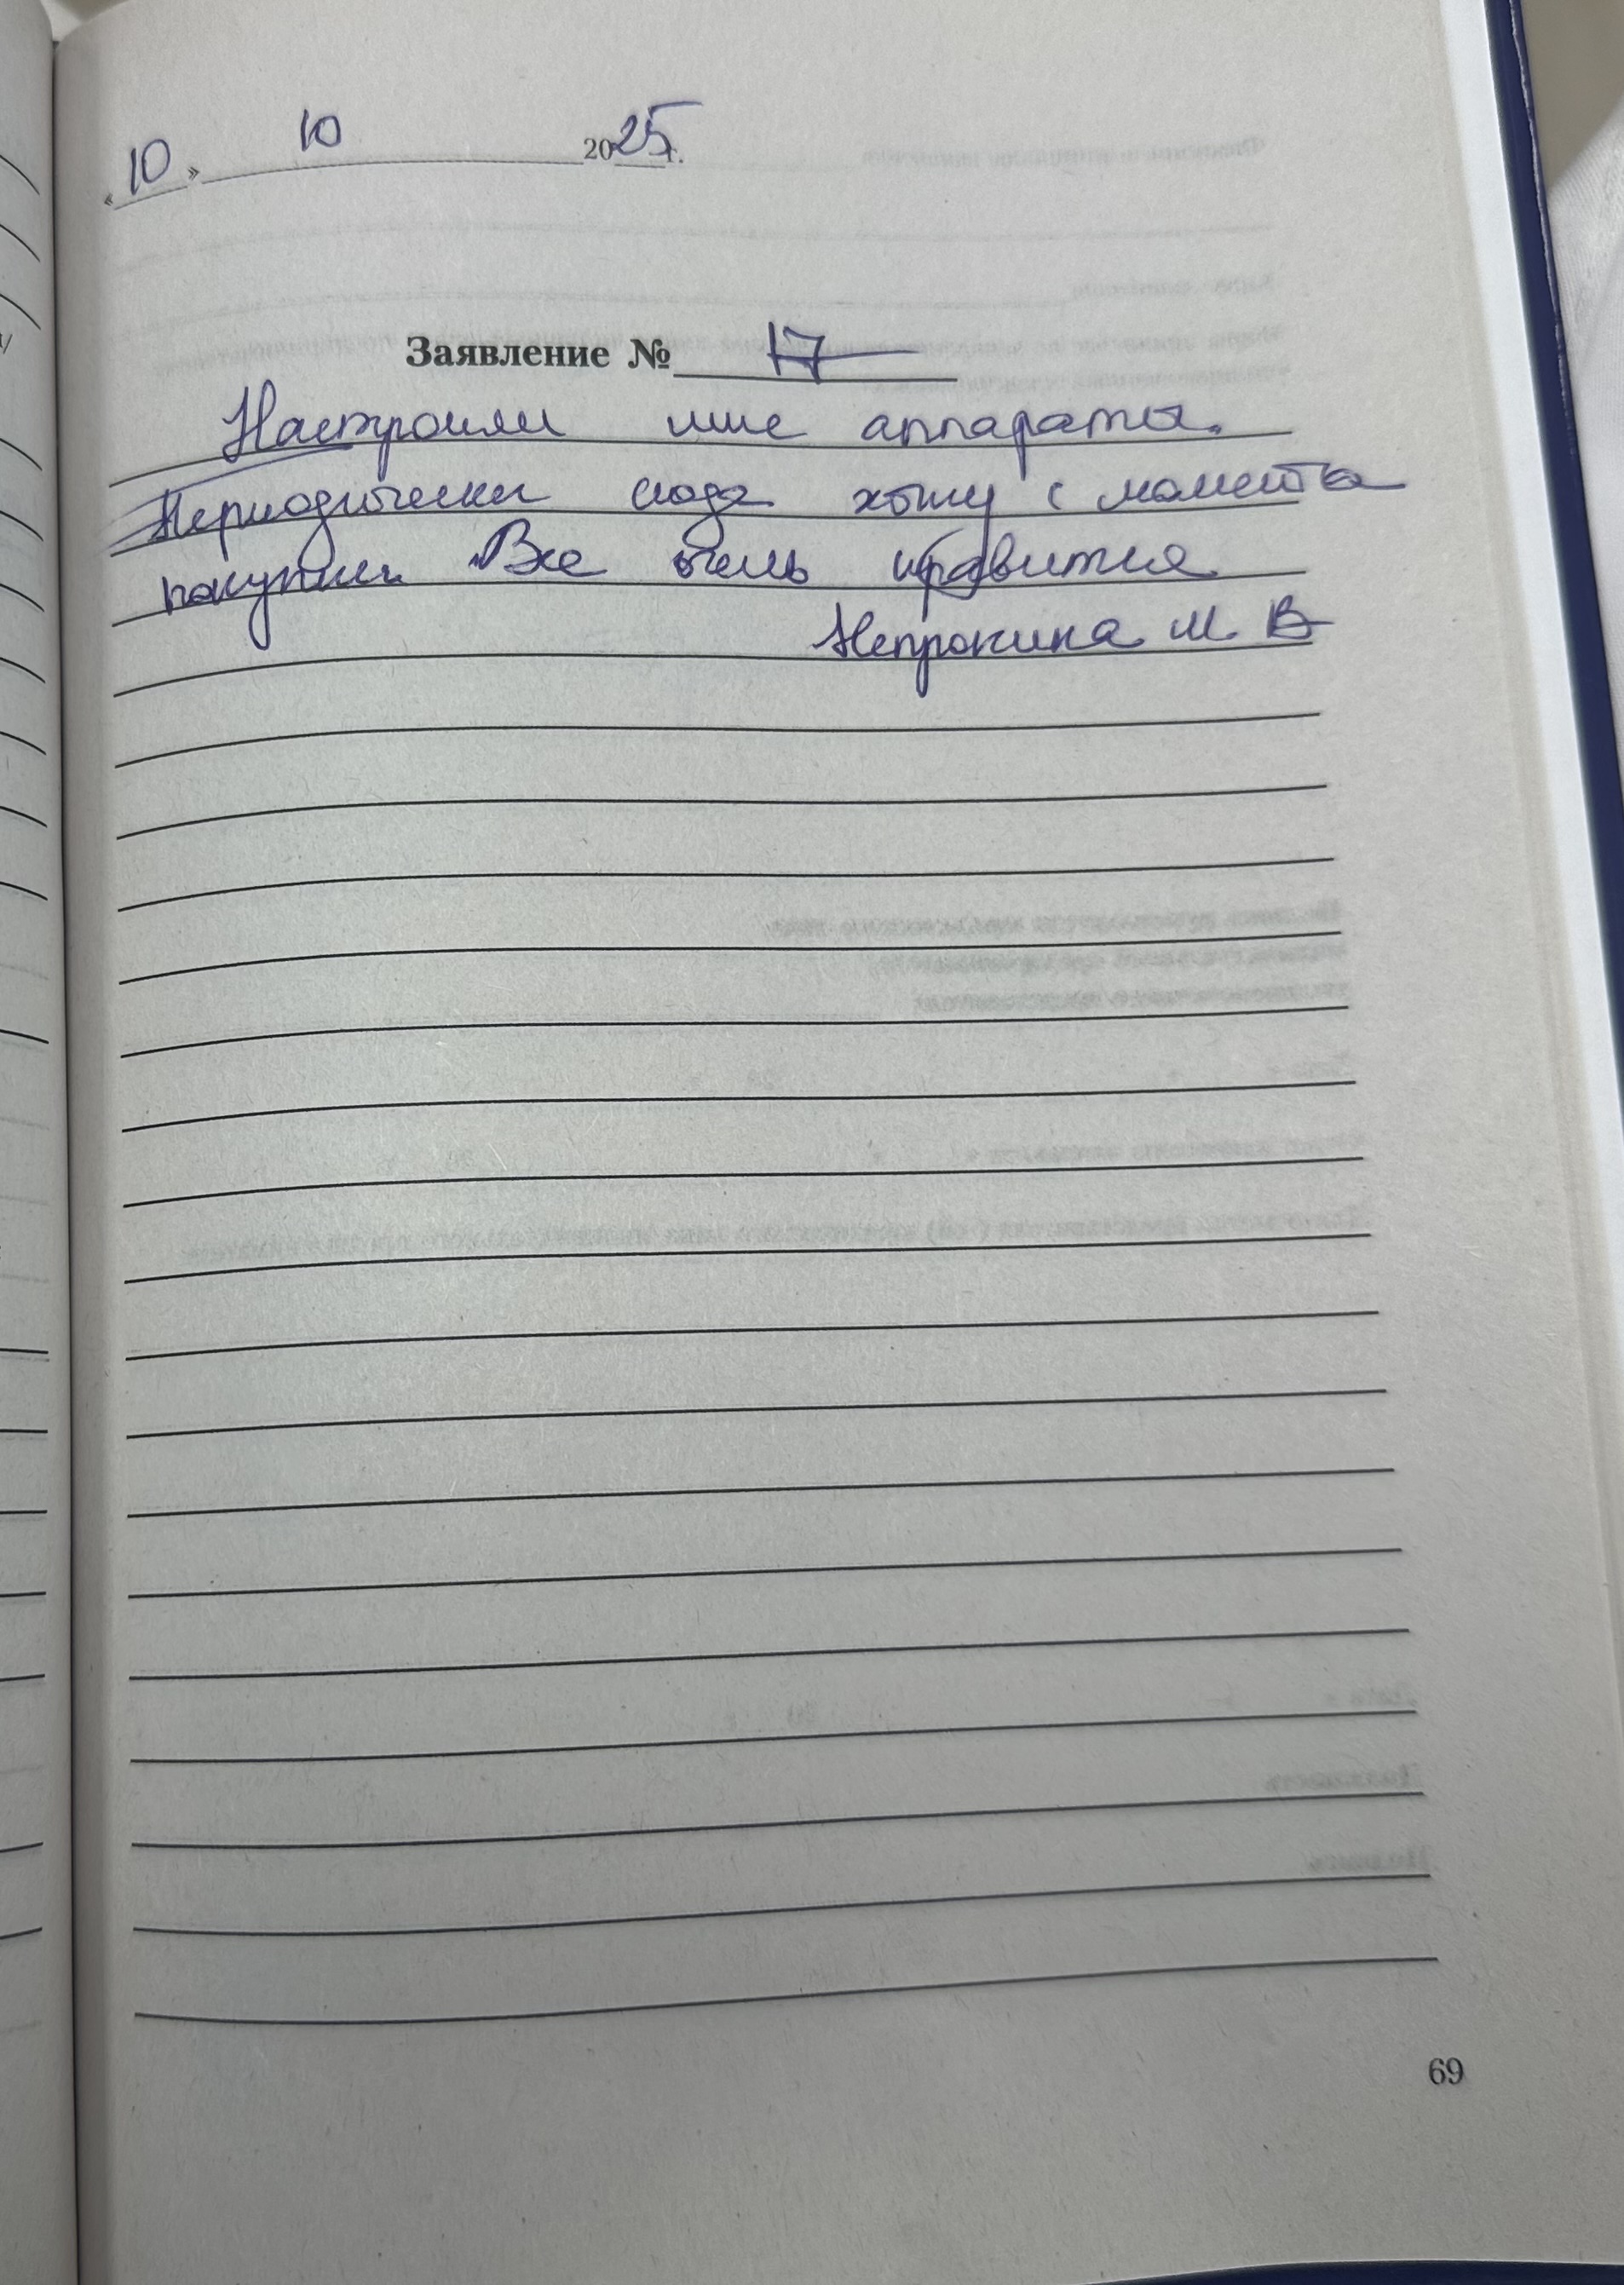 «10» 10 2025г.
Заявление № 17
Настроили мне аппараты.
Периодически сюда хожу с момента
покупки. Все очень нравится
Непрокина М. В
69